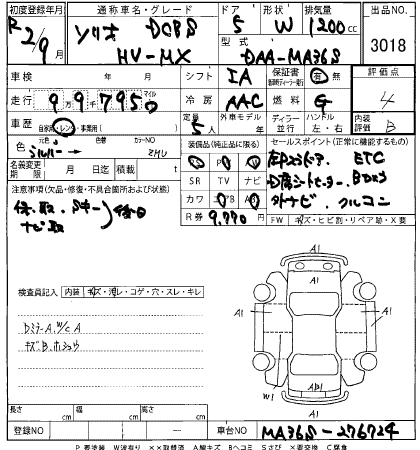 初度登録年月 通称車名・グレード ドア 形状 排気量 出品NO.
R2/9月 ソリオ DCBS 5 W 1200cc 3018
HV-MX 型式 DAA-MA36S
車検 年 月 シフト IA 保証書 有 無 評価点
走行 99千795 マイル 冷房 AAC 燃料 G 4
車歴 自家用・レンタ・事業用( ) 定員 5人 外車モデル 年 ディーラー 並行 ハンドル 左・右 内装評価 B
色 シルバー 色替 カラーNO ZMU 装備品(純正品に限る) セールスポイント(正常に機能するもの)
名義変更期限 月 日迄 積載量 t
SR TV ナビ
カワ エアB
R券 9,770円
ETC
外ナビ クルコン
注意事項(欠品・修復・不具合箇所および状態)
保、取、Sキー 後日
ナビ取
FW キズ・ヒビ割・リペア跡・X要
検査員記入 内装 キズ・汚レ・コゲ・穴・スレ・キレ
DミラーA、W/C A
キズB、ホショウ
A1
A1
A1
W1
AB1
A1
長さ cm 幅 cm 高さ cm
登録NO 車台NO MA36S-276724
P 要塗装 W波有り ××取替済 A線キズ Bヘコミ Sサビ X要交換 C腐食